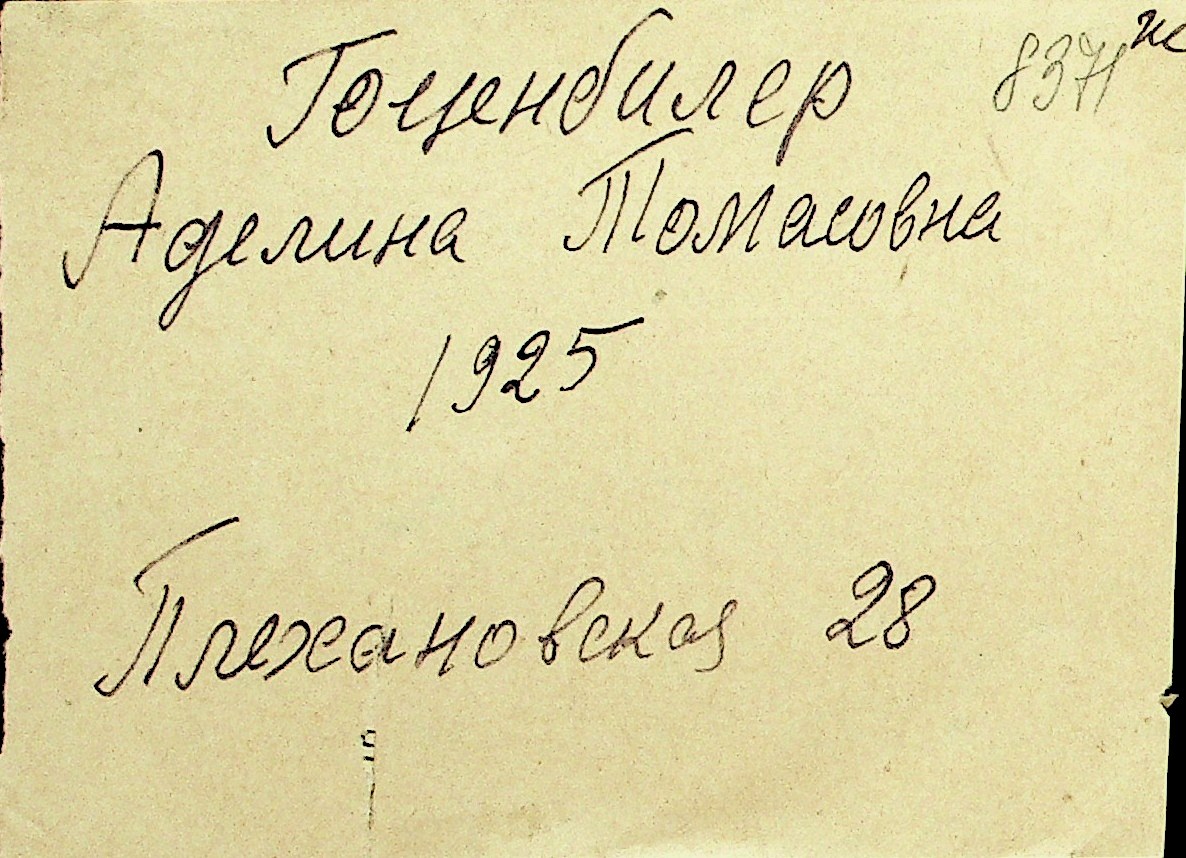 Гоценбилер
8371 ж
Аделина Томасовна
1925
Плехановская 28